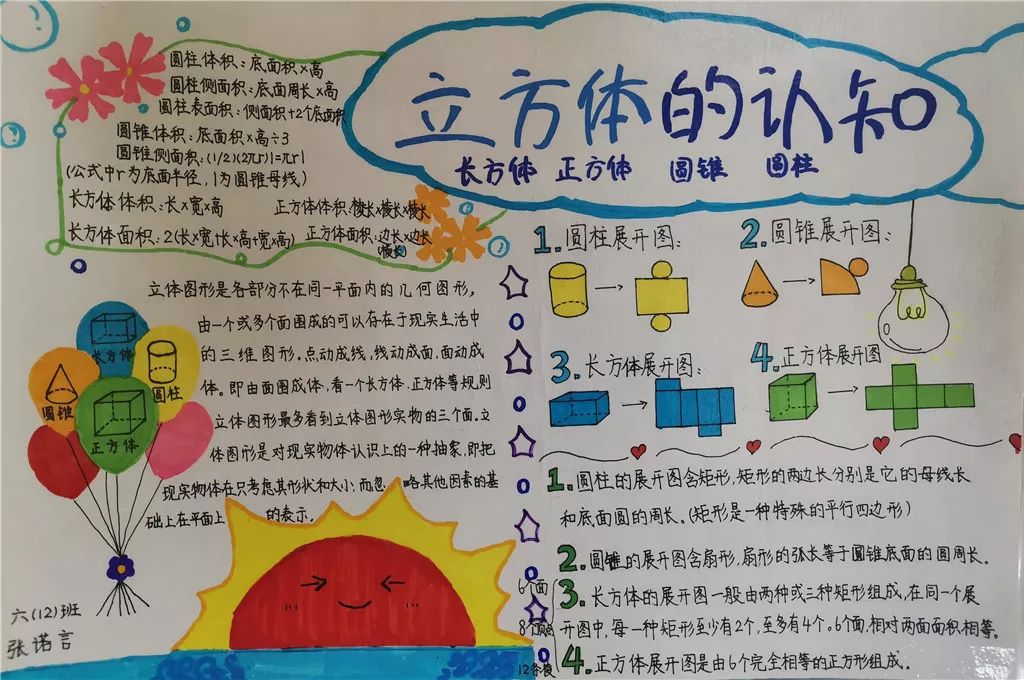 立方体的认知
长方体 正方体 圆锥 圆柱
圆柱体积：底面积×高
圆柱侧面积：底面周长×高
圆柱表面积：侧面积+2个底面积
圆锥体积：底面积×高÷3
圆锥侧面积：(1/2)(2πr)l=πrl
(公式中r为底面半径，l为圆锥母线)
长方体体积：长×宽×高
正方体体积：棱长×棱长×棱长
长方体面积：2(长×宽+长×高+宽×高)
正方体面积：边长×边长
(棱长)
立体图形是各部分不在同一平面内的几何图形，
由一个或多个面围成的可以存在于现实生活中
的三维图形。点动成线，线动成面，面动成
体。即由面围成体，看一个长方体，正方体等规则
立体图形最多看到立体图形实物的三个面。立
体图形是对现实物体认识上的一种抽象，即把
现实物体在只考虑其形状和大小；而忽 略其他因素的基
础上在平面上 的表示。
长方体
圆锥
圆柱
正方体
六(12)班
张诺言
1.圆柱展开图：
2.圆锥展开图：
3.长方体展开图：
4.正方体展开图
1.圆柱的展开图含矩形，矩形的两边长分别是它的母线长
和底面圆的周长。(矩形是一种特殊的平行四边形)
2.圆锥的展开图含扇形，扇形的弧长等于圆锥底面的圆周长。
6个面
8个顶点
12条棱
3.长方体的展开图一般由两种或三种矩形组成，在同一个展
开图中，每一种矩形至少有2个，至多有4个。6个面，相对两面面积相等。
4.正方体展开图是由6个完全相等的正方形组成。